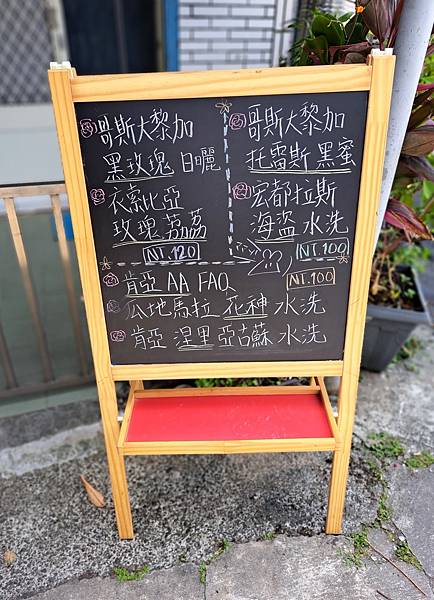 哥斯大黎加
黑玫瑰 日曬
衣索比亞
玫瑰荔荔
NT.120
哥斯大黎加
托雷斯 黑蜜
宏都拉斯
海盜 水洗
NT.100
NT.100
肯亞 AA FAQ
瓜地馬拉 花神 水洗
肯亞 涅里 亞古蘇 水洗